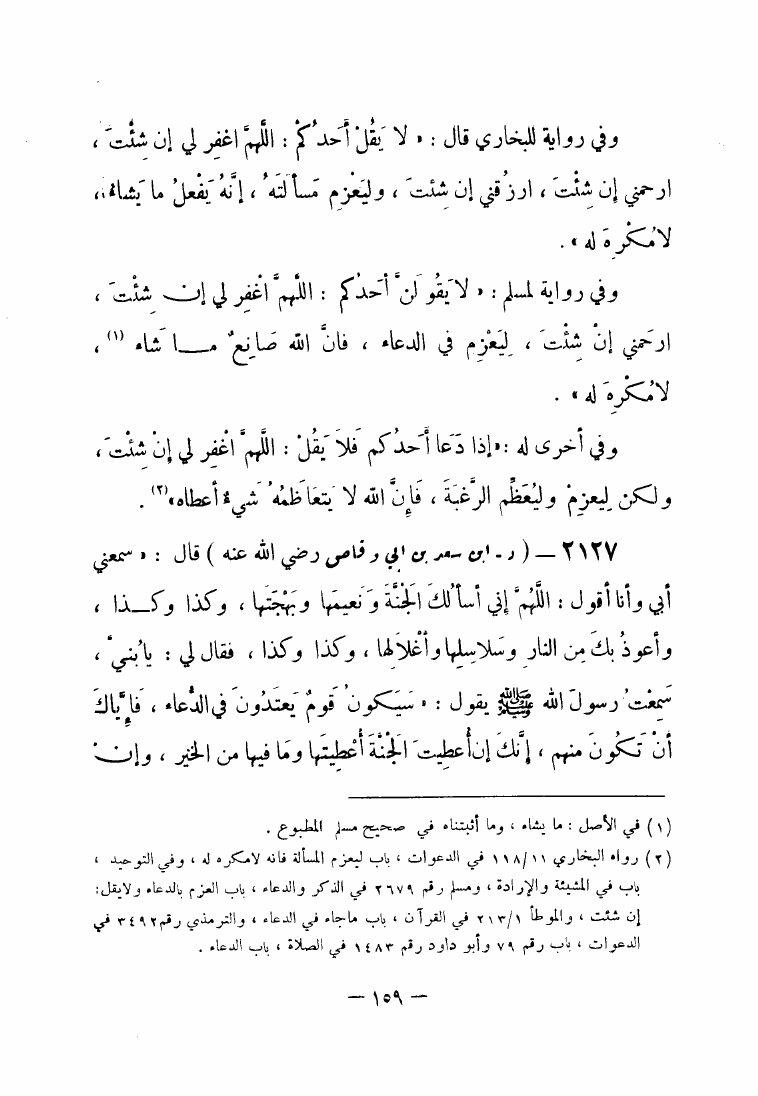 وفي رواية للبخاري قال : « لا يَقُلْ أَحدُكُمْ : اللَّهمَّ اغفِر لي إن شِئْتَ ،
ارحمني إن شِئْتَ ، ارزُقني إن شئتَ ، وليَعْزِم مَسأَلتَهُ ، إنَّهُ يَفْعلُ ما يَشاءُ ،
لامُكْرِهَ له » .
وفي رواية لمسلم : « لا يَقُولَنَّ أحَدُكُم : اللَّهمَّ اغْفِر لي إن شِئْتَ ،
ارحَمني إنْ شِئْتَ ، لِيَعْزِم في الدعاء ، فانَّ الله صَانِعٌ مـا شَاء (١) ،
لامُكْرِهَ له » .
وفي أخرى له : « إذا دَعا أَحدُكُم فَلاَ يَقُلْ : اللَّهمَّ اغْفِر لي إنْ شِئْتَ ،
ولكن لِيعزِمْ وليُعَظِّمِ الرَّغبَةَ ، فَإِنَّ الله لا يَتعَاظَمُهُ شَيءٌ أعطاه » (٢) .
٢١٢٧ — ( د - ابن سعد بن ابي وقاص رضي الله عنه ) قال : « سمعني
أبي وأنا أقول : اللَّهُمَّ إني أسأَلُكَ الجَنَّةَ وَنَعيمَها وبَهْجَتَها ، وكذا وكـذا ،
وأعوذُ بكَ مِن النار وسَلاسِلِها وأغْلاَلها ، وكذا وكذا ، فقال لي : يا بُنيَّ ،
سَمِعْتُ رسولَ الله ﷺ يقول : « سَيَكونُ قَومٌ يَعتَدُونَ في الدُّعاء ، فَإِيَّاكَ
أنْ تَكُونَ منهم ، إنَّكَ إن أُعطِيتَ الجَنَّةَ أُعْطِيتَها ومَا فيها من الخَير ، وإنْ
(١) في الأصل : ما يشاء ، وما أثبتناه في صحيح مسلم المطبوع .
(٢) رواه البخاري ١١٨/١١ في الدعوات ، باب ليعزم المسألة فانه لامكره له ، وفي التوحيد ،
باب في المشيئة والإرادة ، ومسلم رقم ٢٦٧٩ في الذكر والدعاء ، باب العزم بالدعاء ولايقل:
إن شئت ، والموطأ ٢١٣/١ في القرآن ، باب ماجاء في الدعاء ، والترمذي رقم ٣٤٩٢ في
الدعوات ، باب رقم ٧٩ وأبو داود رقم ١٤٨٣ في الصلاة ، باب الدعاء .
— ١٥٩ —